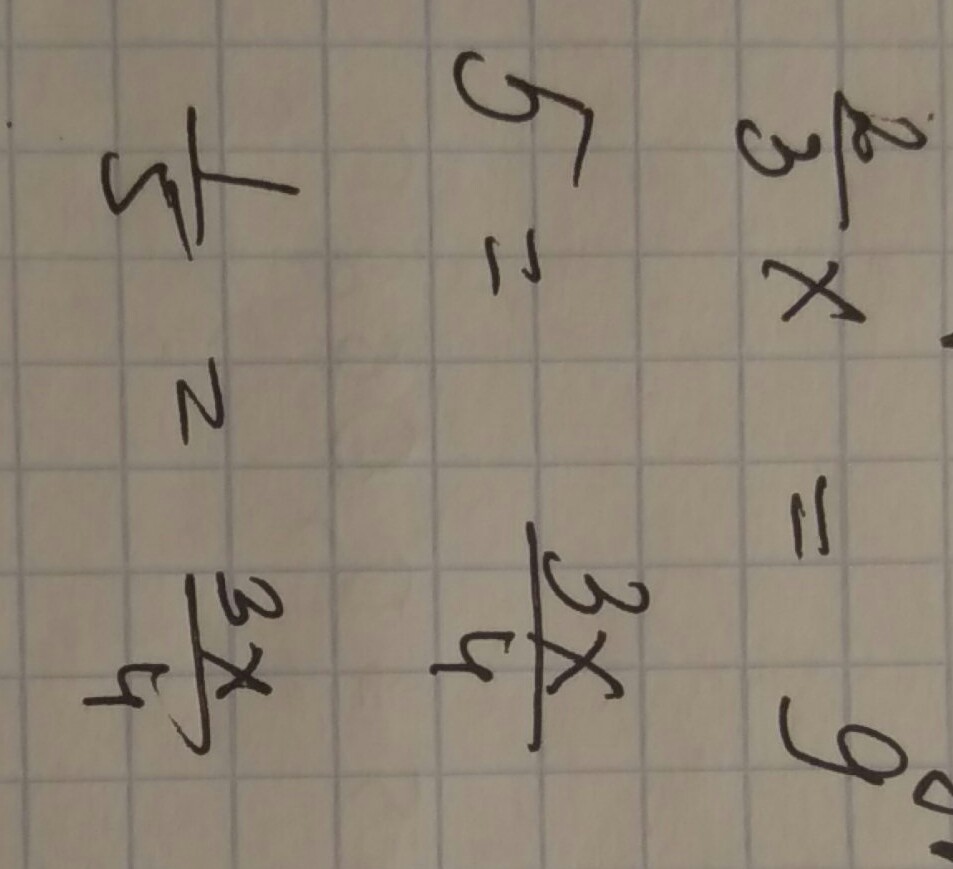 2/3 x = 9
5 = 3x/4
1/5 = 3x/4